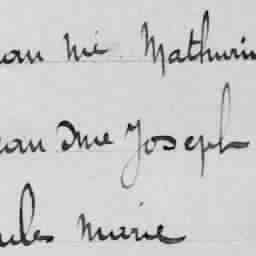 ean Me Mathurin
ean Me Joseph
ules Marie